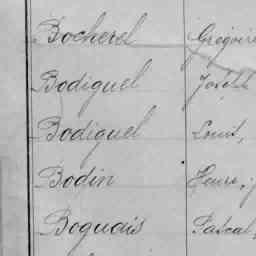 Bocherel Grégoire
Bodiguel Joseph
Bodiguel Louis,
Bodin
Boquais Pascal,